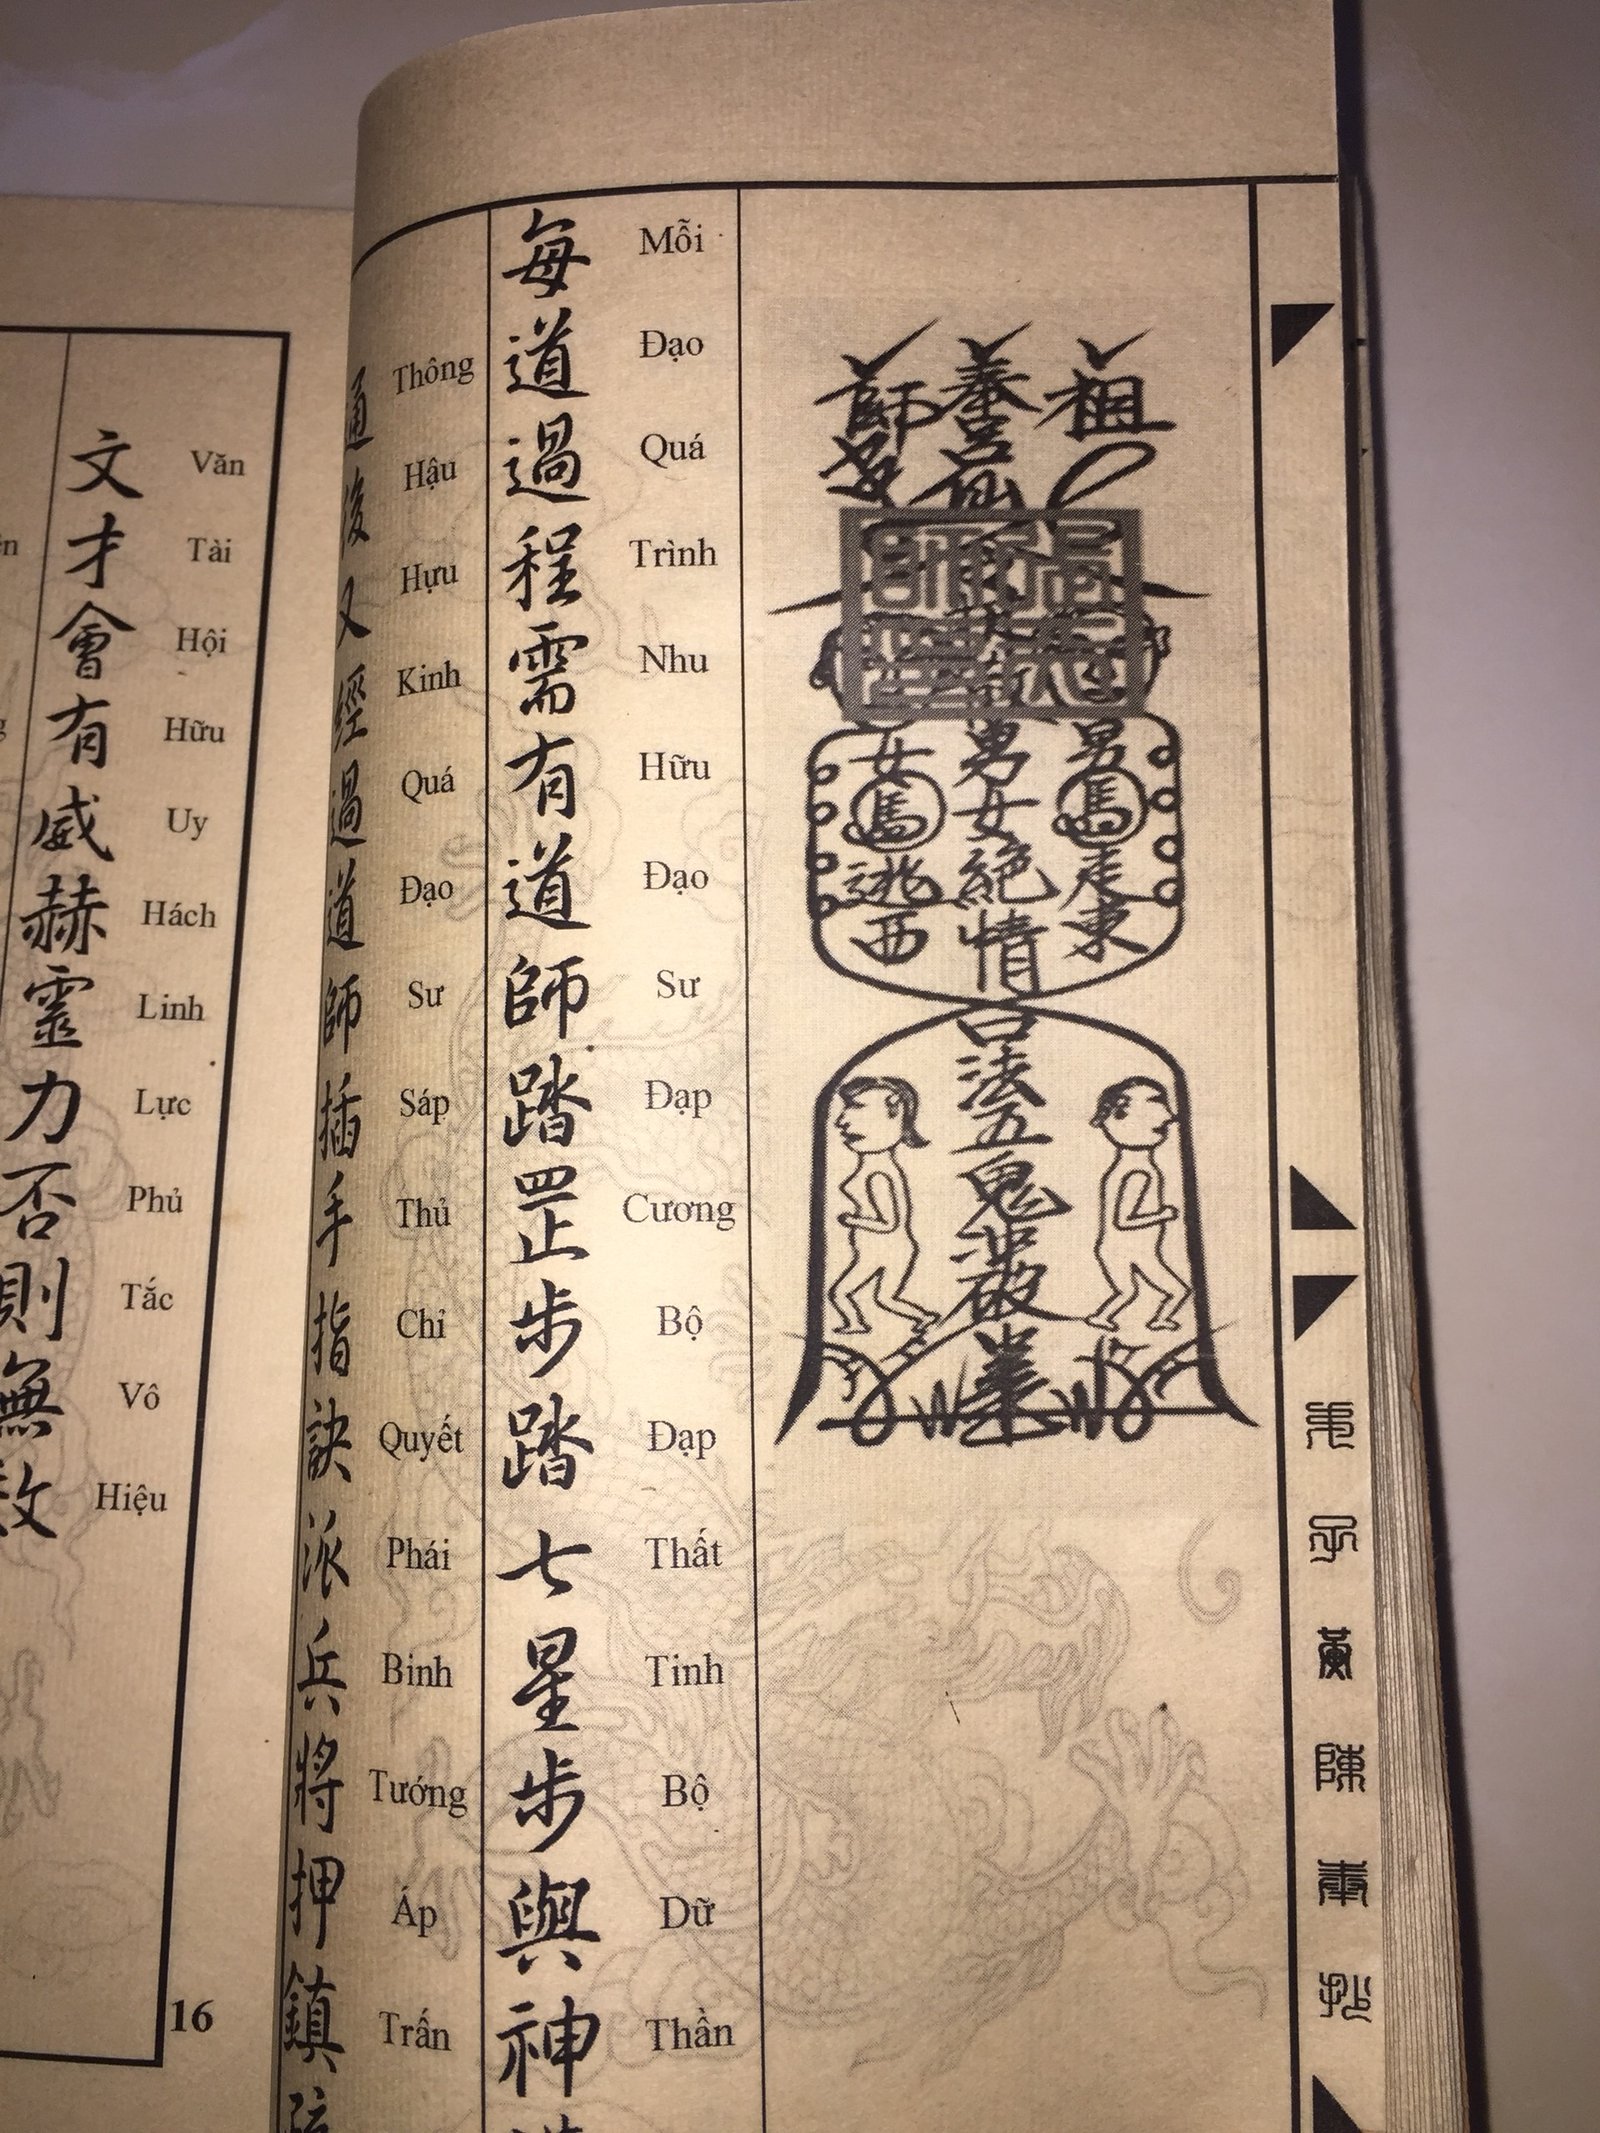 祖
養
師
仙
男馬走東
男女絕情
女馬逃西
口法五鬼
破
每道過程需有道師踏罡步踏七星步與神
Mỗi Đạo Quá Trình Nhu Hữu Đạo Sư Đạp Cương Bộ Đạp Thất Tinh Bộ Dữ Thần
通後又經過道師插手指訣派兵將押鎮
Thông Hậu Hựu Kinh Quá Đạo Sư Sáp Thủ Chỉ Quyết Phái Binh Tướng Áp Trấn
弟子黃陳奉抄
文才會有威赫靈力否則無效
Văn Tài Hội Hữu Uy Hách Linh Lực Phủ Tắc Vô Hiệu
16